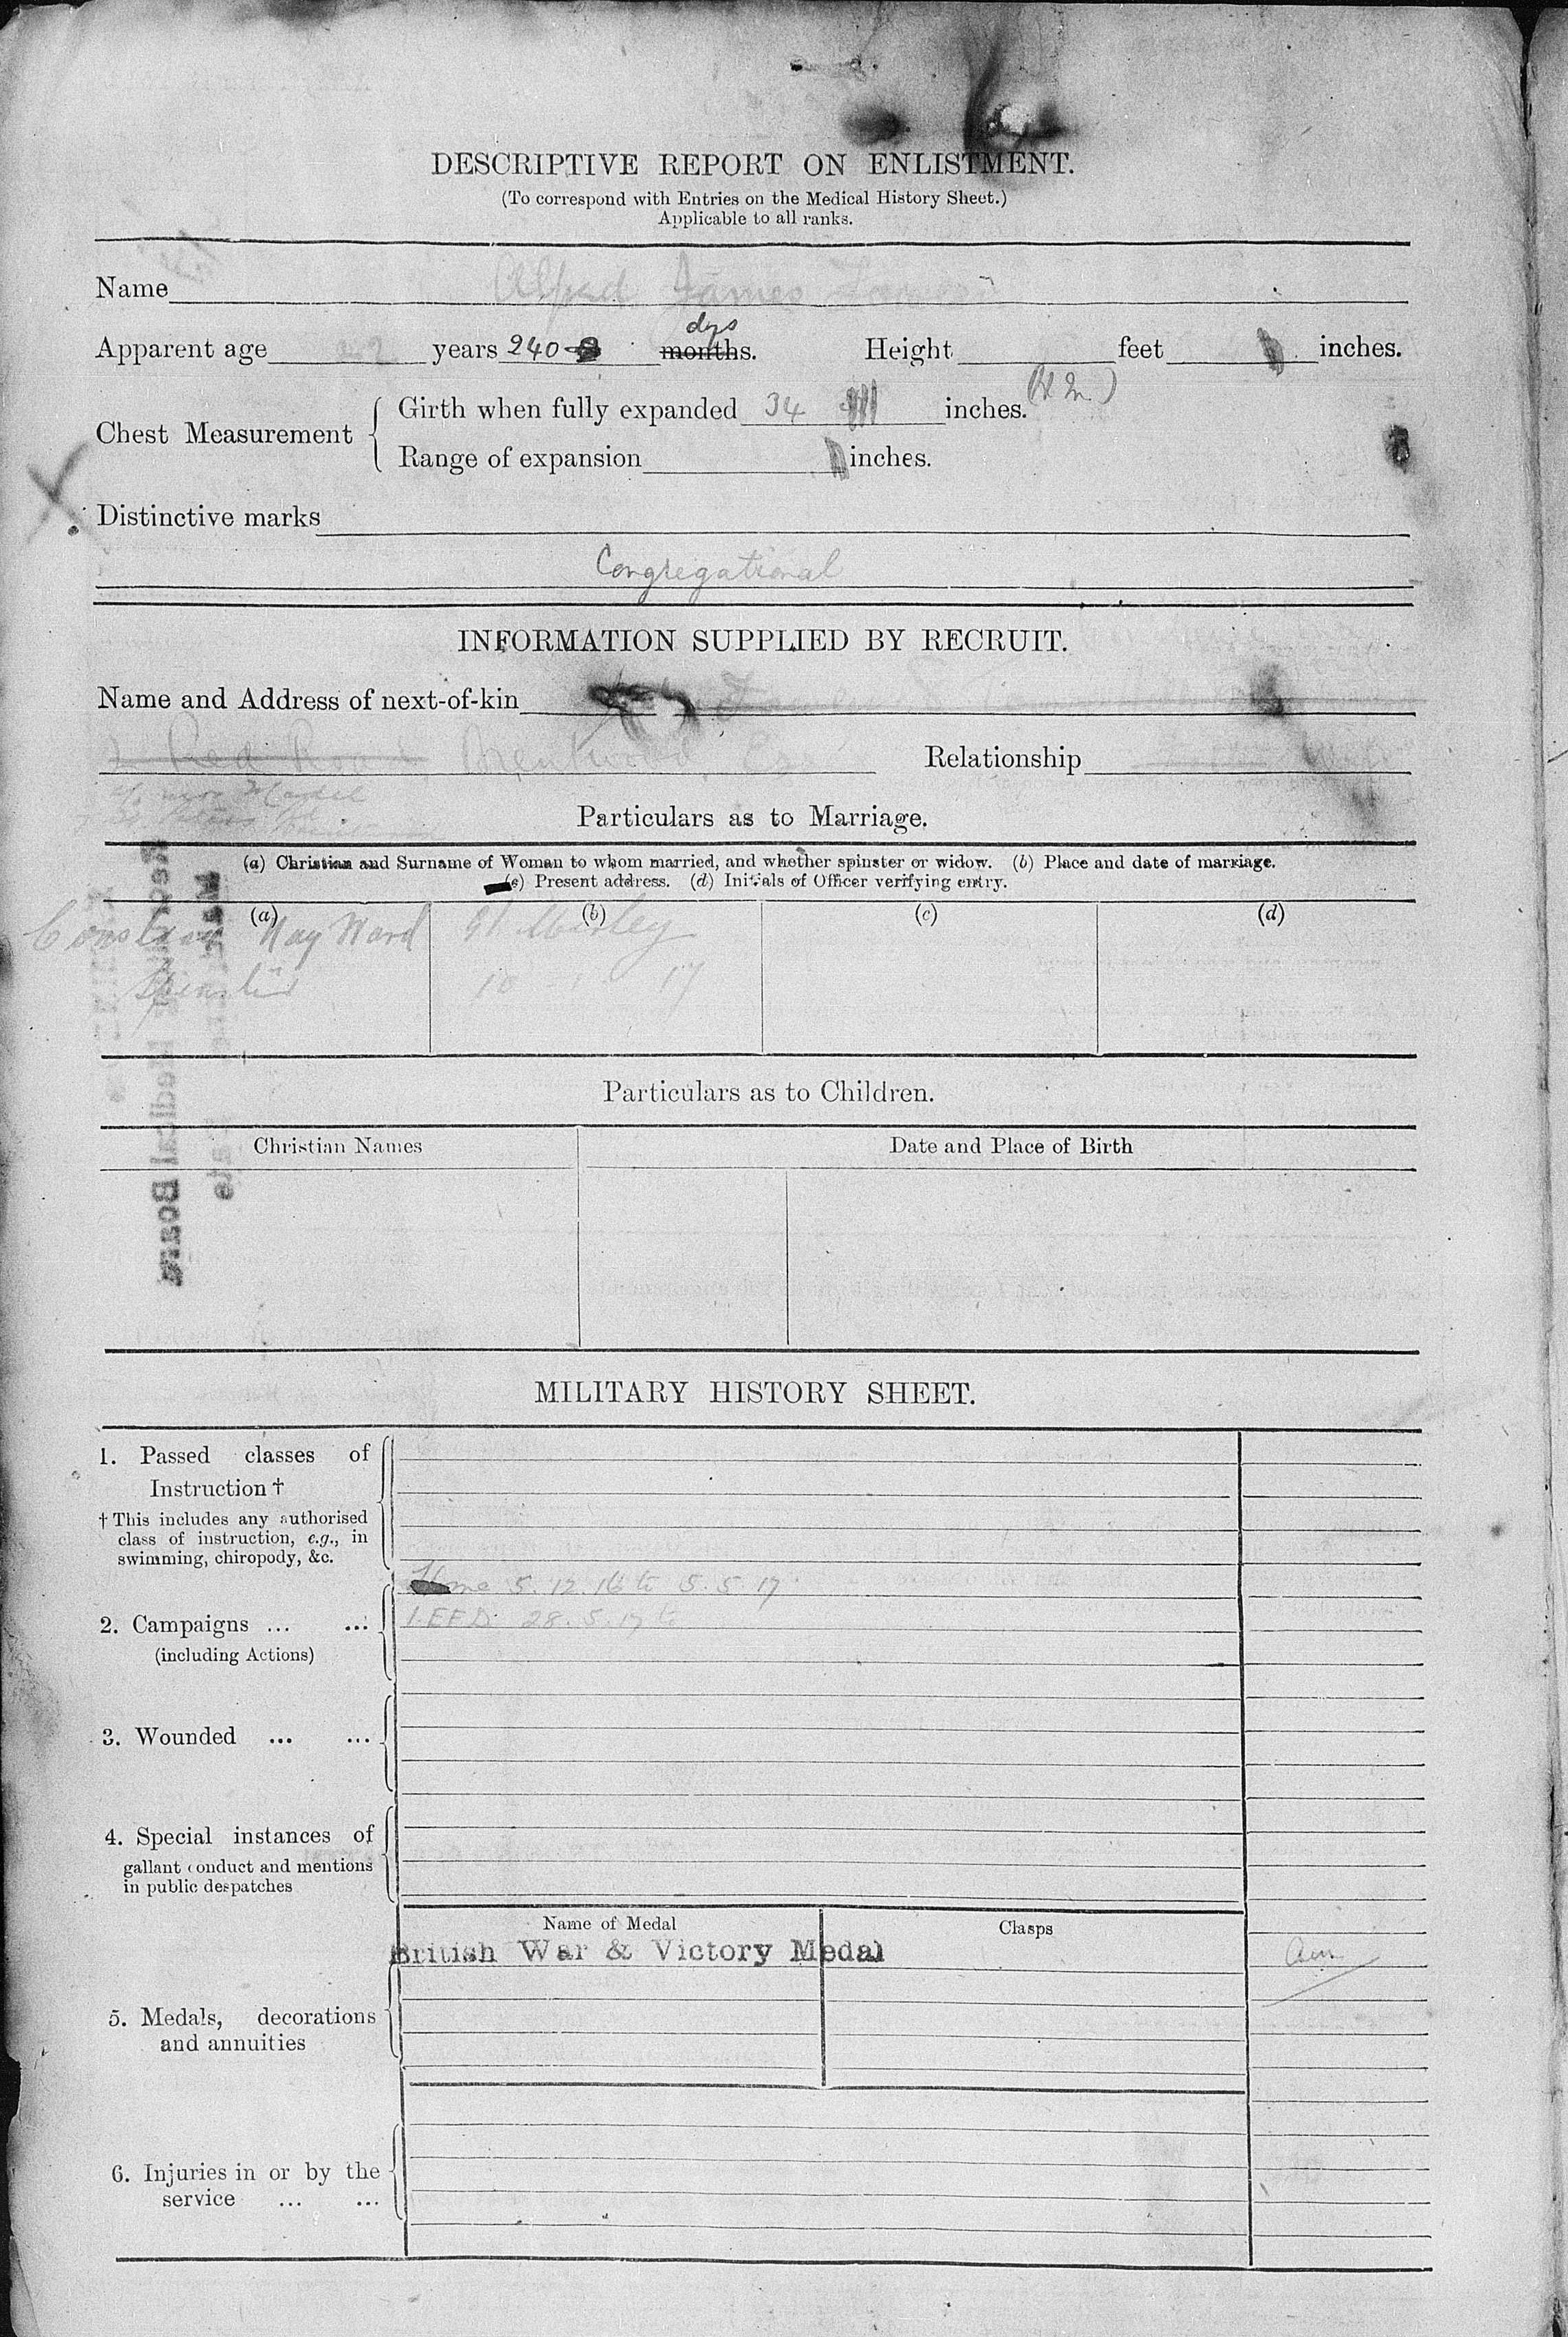 DESCRIPTIVE REPORT ON ENLISTMENT.
(To correspond with Entries on the Medical History Sheet.)
Applicable to all ranks.
Name Alfred James
Apparent age years 240 dys months. Height feet inches.
Chest Measurement { Girth when fully expanded 34 inches.
Range of expansion inches.
Distinctive marks
Congregational
INFORMATION SUPPLIED BY RECRUIT.
Name and Address of next-of-kin
Brentwood, Relationship Wife
Particulars as to Marriage.
(a) Christian and Surname of Woman to whom married, and whether spinster or widow. (b) Place and date of marriage.
(c) Present address. (d) Initials of Officer verifying entry.
(a) (b) (c) (d)
May Ward
Spinster 10 17
Particulars as to Children.
Christian Names Date and Place of Birth
Medical Board
MILITARY HISTORY SHEET.
1. Passed classes of
Instruction †
† This includes any authorised
class of instruction, e.g., in
swimming, chiropody, &c.
Home 5.12.16 to 5.5.17
2. Campaigns ... ... 28.5.17 to
(including Actions)
3. Wounded ... ...
4. Special instances of
gallant conduct and mentions
in public despatches
Name of Medal Clasps
British War & Victory Medal
5. Medals, decorations
and annuities
6. Injuries in or by the
service ... ...